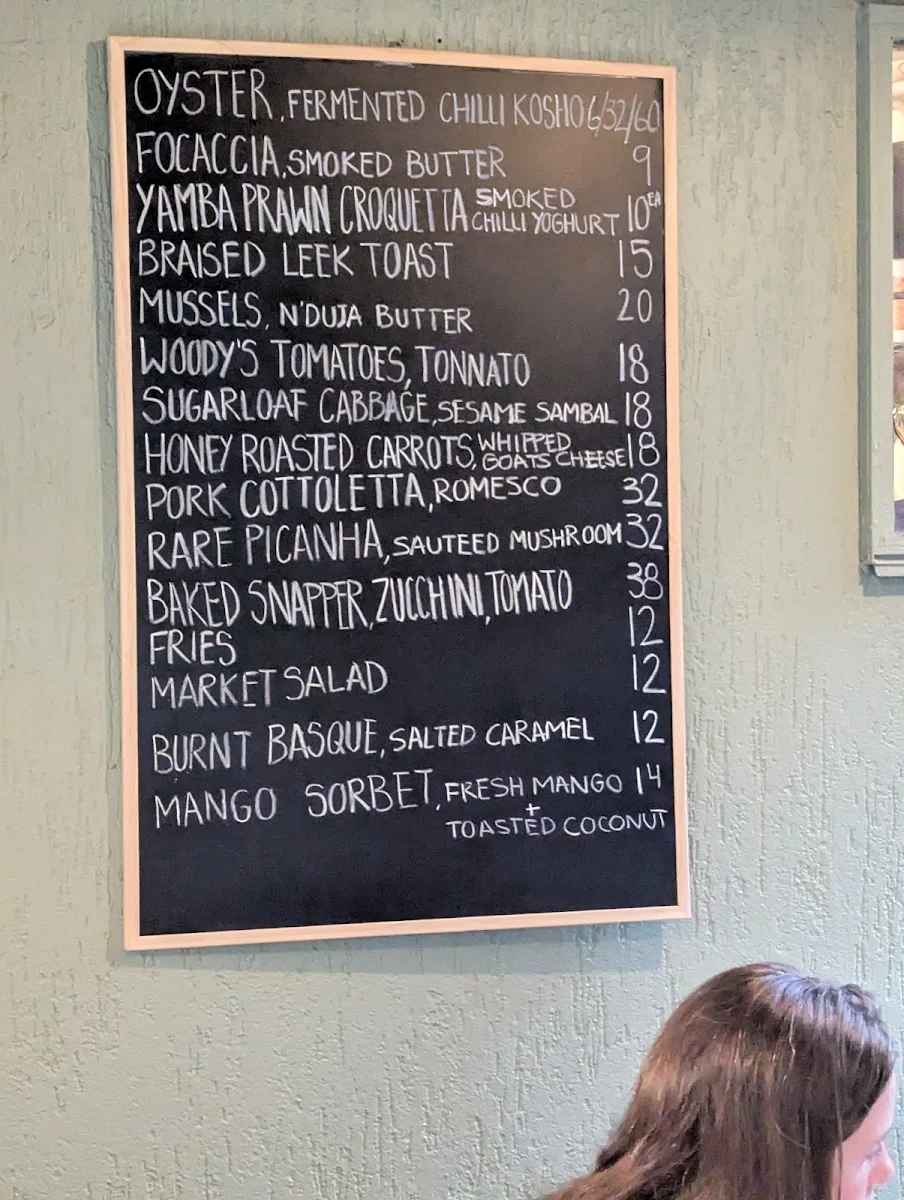 OYSTER, FERMENTED CHILLI KOSHO 6/32/60
FOCACCIA, SMOKED BUTTER 9
YAMBA PRAWN CROQUETTA SMOKED CHILLI YOGHURT 10EA
BRAISED LEEK TOAST 15
MUSSELS, N'DUJA BUTTER 20
WOODY'S TOMATOES, TONNATO 18
SUGARLOAF CABBAGE, SESAME SAMBAL 18
HONEY ROASTED CARROTS, WHIPPED GOATS CHEESE 18
PORK COTTOLETTA, ROMESCO 32
RARE PICANHA, SAUTEED MUSHROOM 32
BAKED SNAPPER, ZUCCHINI, TOMATO 38
FRIES 12
MARKET SALAD 12
BURNT BASQUE, SALTED CARAMEL 12
MANGO SORBET, FRESH MANGO 14
+
TOASTED COCONUT